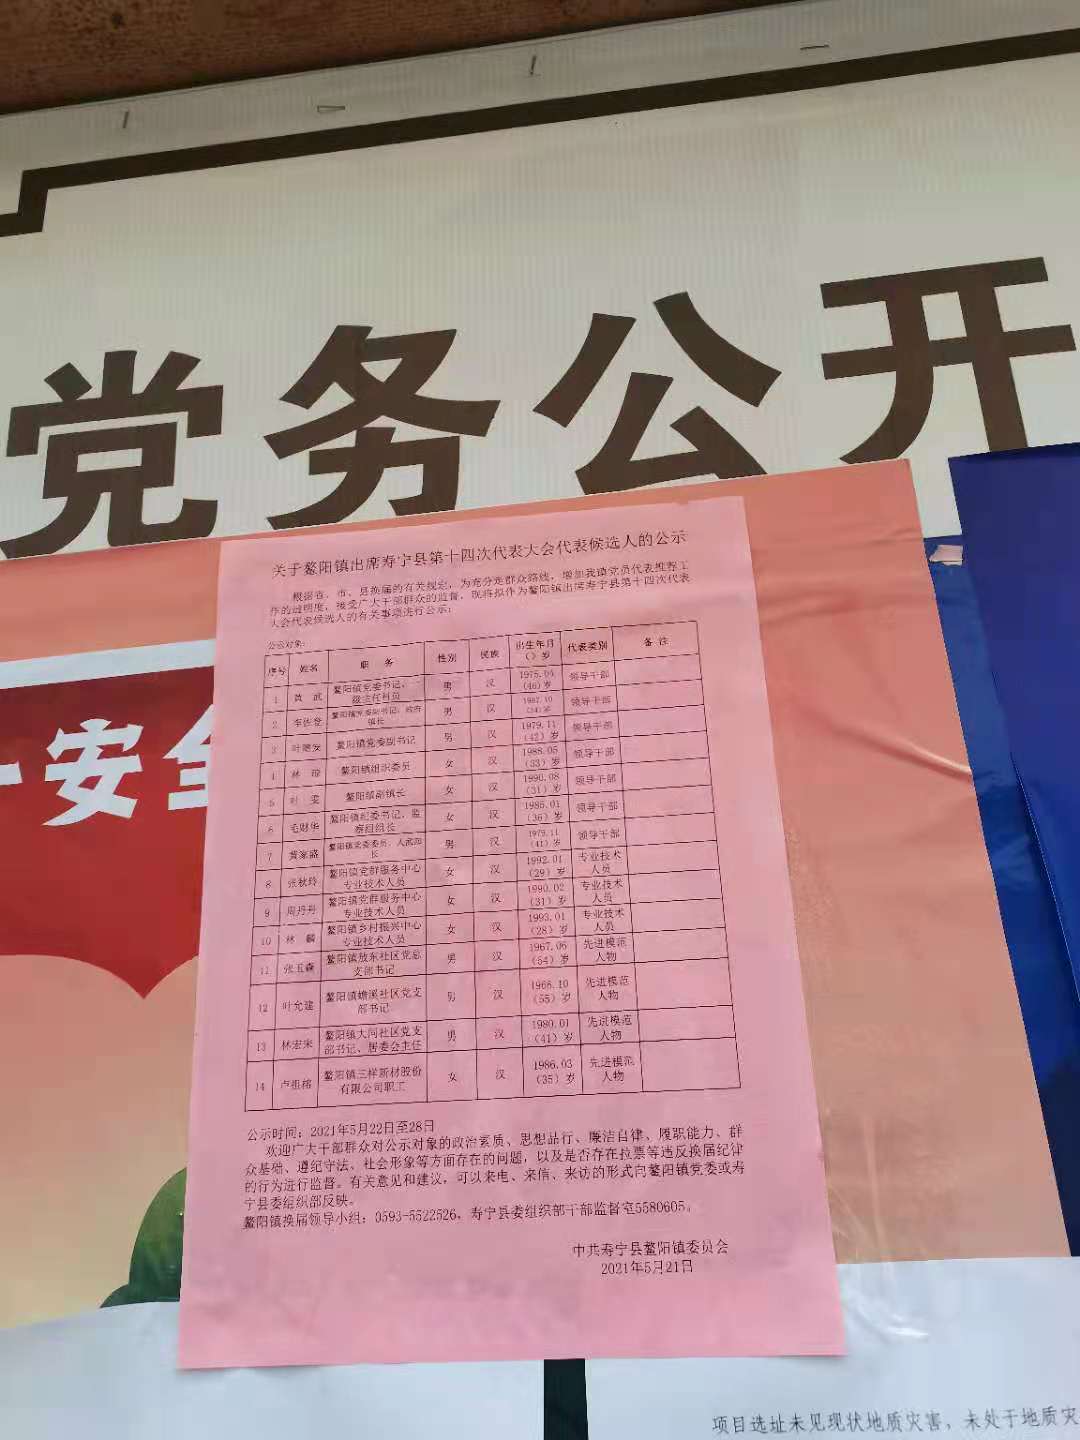 党务公开
一安全
关于鳌阳镇出席寿宁县第十四次代表大会代表候选人的公示
根据省、市、县换届的有关规定，为充分走群众路线，增加我镇党员代表推荐工
作的透明度，接受广大干部群众的监督，现将拟作为鳌阳镇出席寿宁县第十四次代表
大会代表候选人的有关事项进行公示：
公示对象：
序号 姓名 职 务 性别 民族 出生年月（）岁 代表类别 备 注
1 黄 武 鳌阳镇党委书记、一级主任科员 男 汉 1975.04（46）岁 领导干部
2 鳌阳镇党委副书记、政府镇长 男 汉 1987.10（34）岁 领导干部
3 鳌阳镇党委副书记 男 汉 1979.11（42）岁 领导干部
4 林 鳌阳镇组织委员 女 汉 1988.05（33）岁 领导干部
5 叶 雯 鳌阳镇副镇长 女 汉 1990.08（31）岁 领导干部
6 毛财华 鳌阳镇纪委书记、监察组组长 女 汉 1985.01（36）岁 领导干部
7 黄家盛 鳌阳镇党委委员、人武部长 男 汉 1979.11（41）岁 领导干部
8 张秋玲 鳌阳镇党群服务中心专业技术人员 女 汉 1992.01（29）岁 专业技术人员
9 周丹丹 鳌阳镇党群服务中心专业技术人员 女 汉 1990.02（31）岁 专业技术人员
10 林 麟 鳌阳镇乡村振兴中心专业技术人员 女 汉 1993.01（28）岁 专业技术人员
11 张玉森 鳌阳镇放东社区党总支部书记 男 汉 1967.06（54）岁 先进模范人物
12 叶允建 鳌阳镇蟾溪社区党支部书记 男 汉 1966.10（55）岁 先进模范人物
13 林宏来 鳌阳镇大同社区党支部书记、居委会主任 男 汉 1980.01（41）岁 先进模范人物
14 卢祖榕 鳌阳镇三祥新材股份有限公司职工 女 汉 1986.03（35）岁 先进模范人物
公示时间：2021年5月22日至28日
欢迎广大干部群众对公示对象的政治素质、思想品行、廉洁自律、履职能力、群
众基础、遵纪守法、社会形象等方面存在的问题，以及是否存在拉票等违反换届纪律
的行为进行监督。有关意见和建议，可以来电、来信、来访的形式向鳌阳镇党委或寿
宁县委组织部反映。
鳌阳镇换届领导小组：0593-5522526，寿宁县委组织部干部监督室5580605。
中共寿宁县鳌阳镇委员会
2021年5月21日
项目选址未见现状地质灾害，未处于地质灾